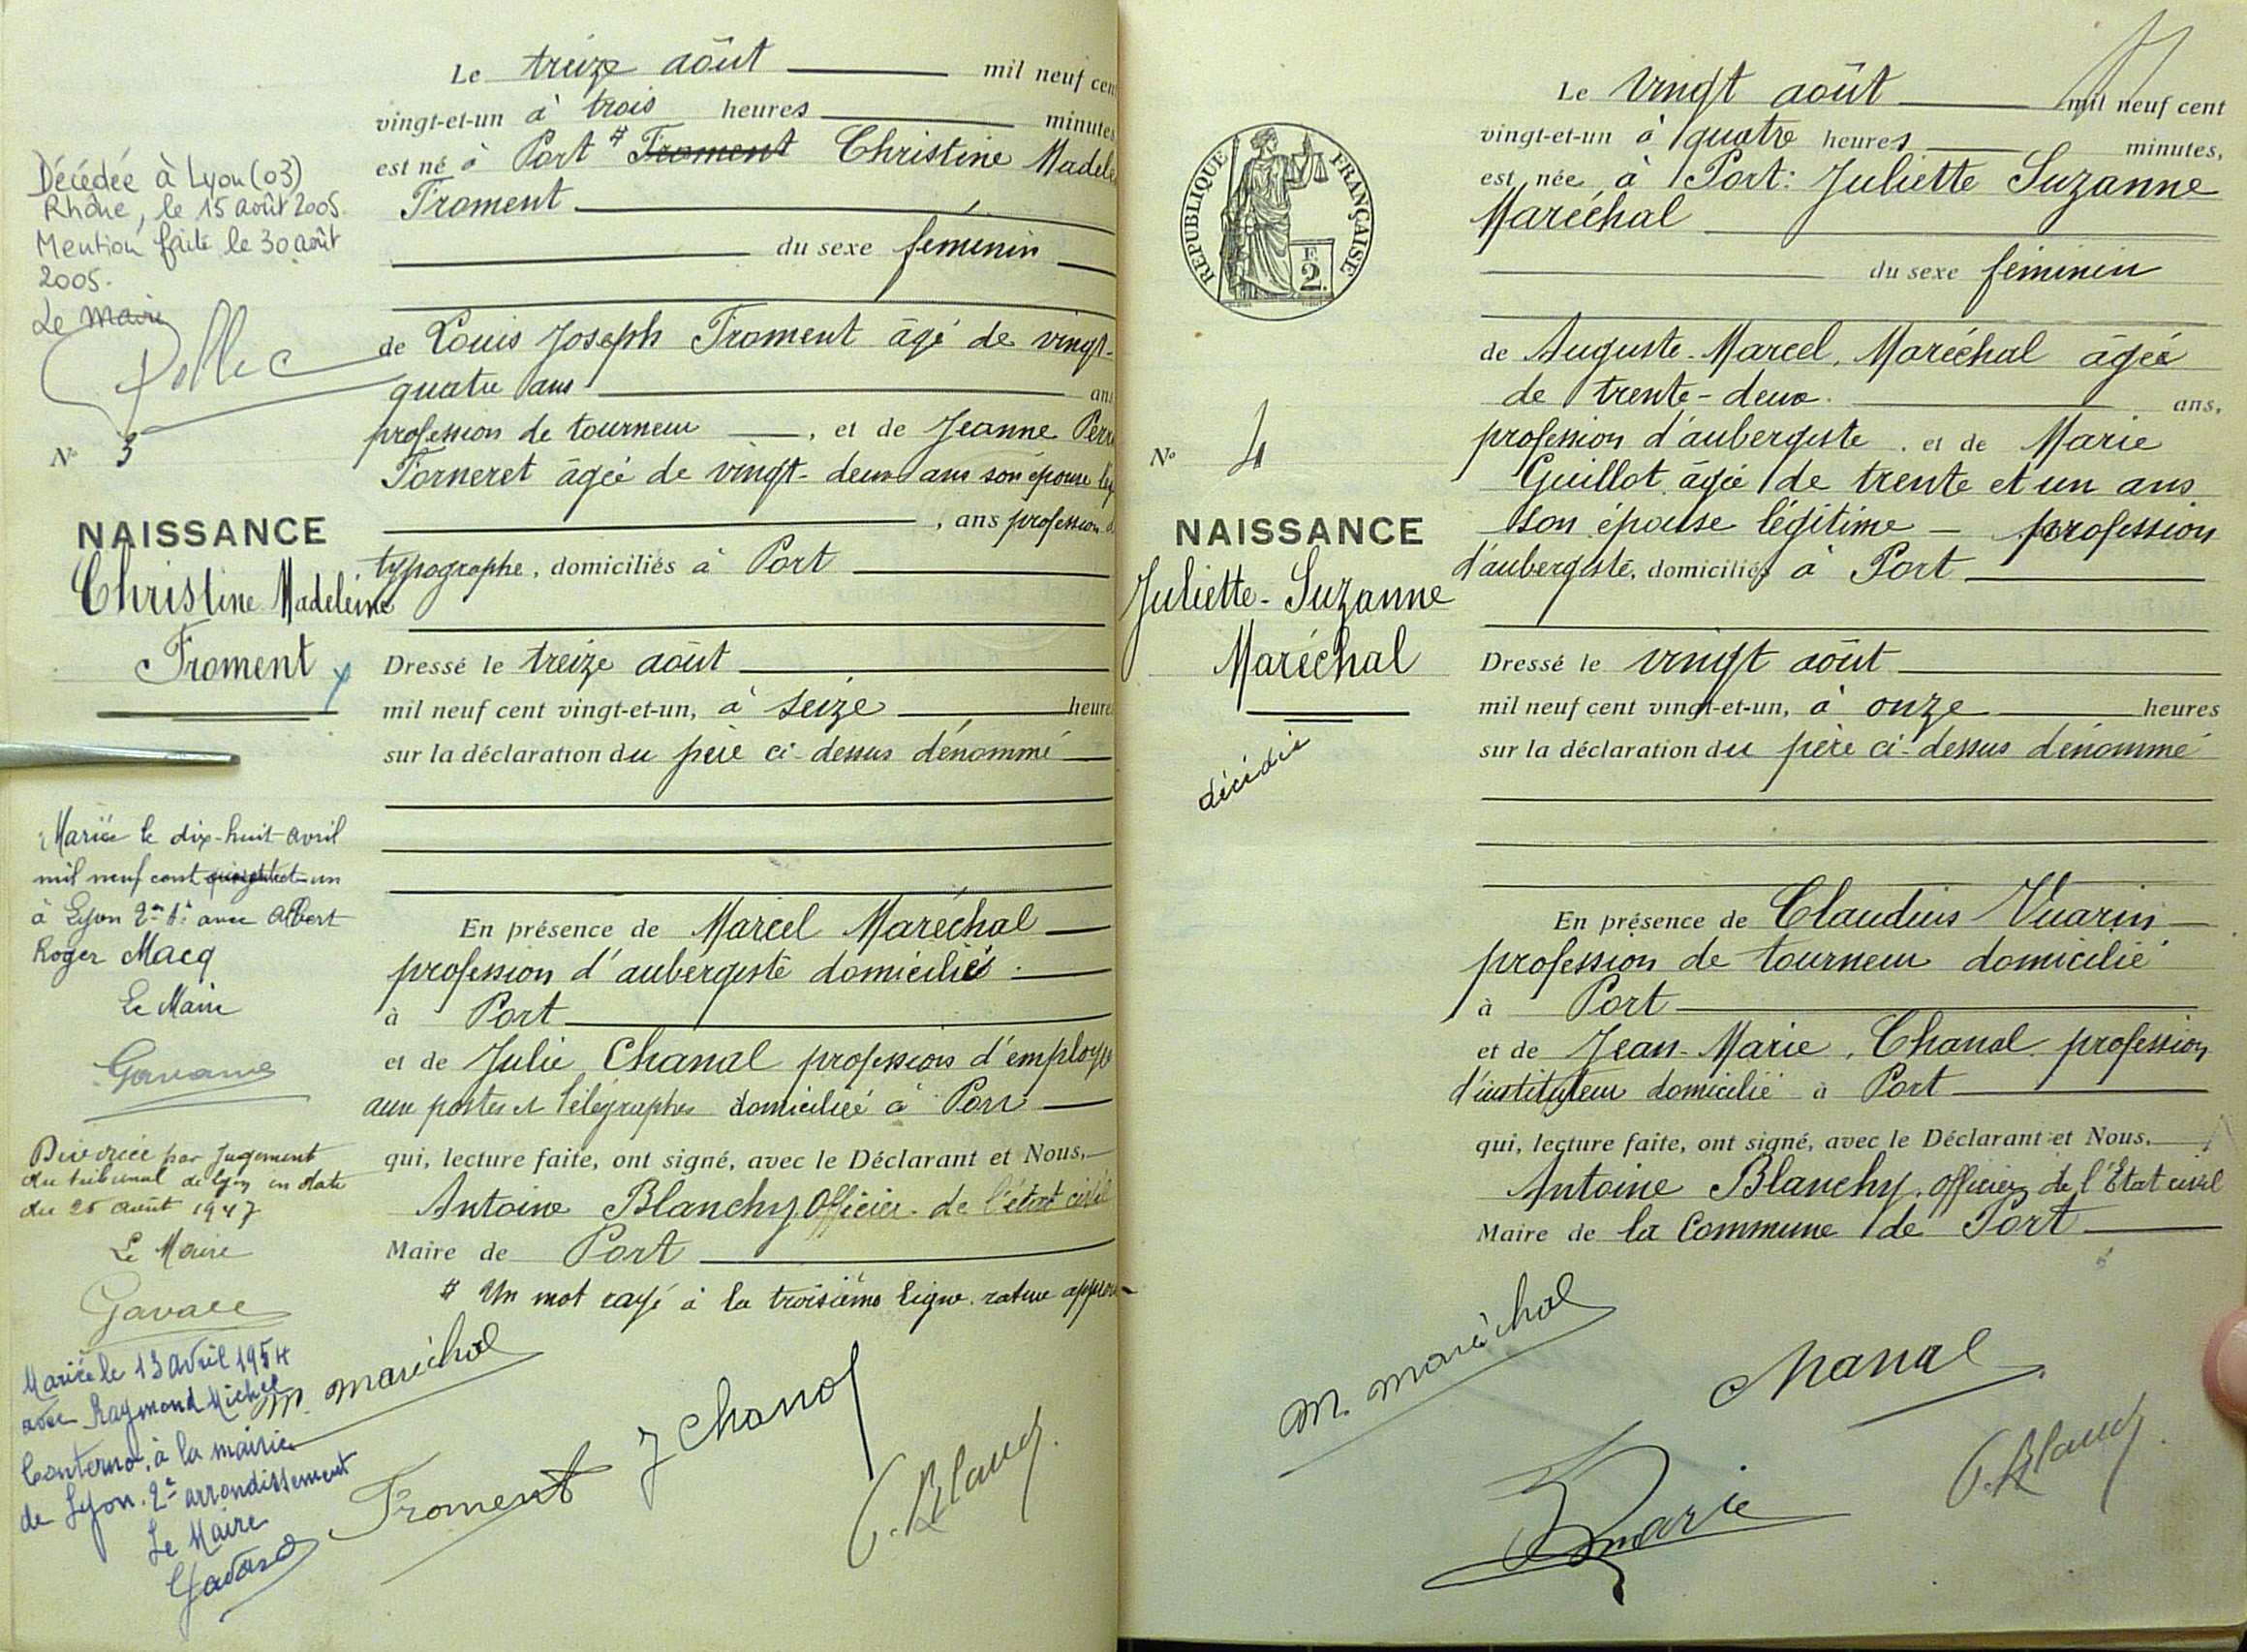 Décédée à Lyon (03)
Rhône, le 15 août 2005.
Mention faite le 30 août
2005.
Le Maire
N° 3
NAISSANCE
Christine Madeleine
Froment
Mariée le dix-huit avril
mil neuf cent un
à Lyon 2e avec Albert
Roger Macq
Le Maire
Divorcée par jugement
du tribunal de Lyon en date
du 25 août 1947
Le Maire
Mariée le 13 avril 1954
avec Raymond Michel
à la mairie
de Lyon. 2e arrondissement
Le Maire
Le treize août mil neuf cen
vingt-et-un à trois heures minutes
est né à Port # Froment Christine Madele
Froment
du sexe féminin
de Louis Joseph Froment âgé de vingt-
quatre ans ans
profession de tourneur , et de Jeanne Perr
Forneret âgée de vingt-deux ans son épouse lég
, ans profession d
typographe, domiciliés à Port
Dressé le treize août
mil neuf cent vingt-et-un, à seize heure
sur la déclaration du père ci-dessus dénommé
En présence de Marcel Maréchal
profession d'aubergiste domiciliés
à Port
et de Julie Chanal profession d'employé
aux postes et télégraphes domiciliée à Port
qui, lecture faite, ont signé, avec le Déclarant et Nous,
Antoine Blanchy Officier de l'état civil
Maire de Port
# Un mot rayé à la troisième ligne. rature approu
M. Maréchal
J Chanal
Froment
RÉPUBLIQUE FRANÇAISE
F
2.
N° 4
NAISSANCE
Juliette-Suzanne
Maréchal
décédée
Le vingt août mil neuf cent
vingt-et-un à quatre heures minutes,
est née à Port: Juliette Suzanne
Maréchal
du sexe féminin
de Auguste-Marcel, Maréchal âgée
de trente-deux ans,
profession d'aubergiste, et de Marie
Guillot âgée de trente et un ans
son épouse légitime - profession
d'aubergiste, domiciliés à Port
Dressé le vingt août
mil neuf cent vingt-et-un, à onze heures
sur la déclaration du père ci-dessus dénommé
En présence de Claudius Vuarin
profession de tourneur domicilié
à Port
et de Jean-Marie, Chanal profession
d'instituteur domicilié à Port
qui, lecture faite, ont signé, avec le Déclarant et Nous,
Antoine Blanchy, Officier de l'Etat civil
Maire de la Commune de Port
M. Maréchal
Chanal